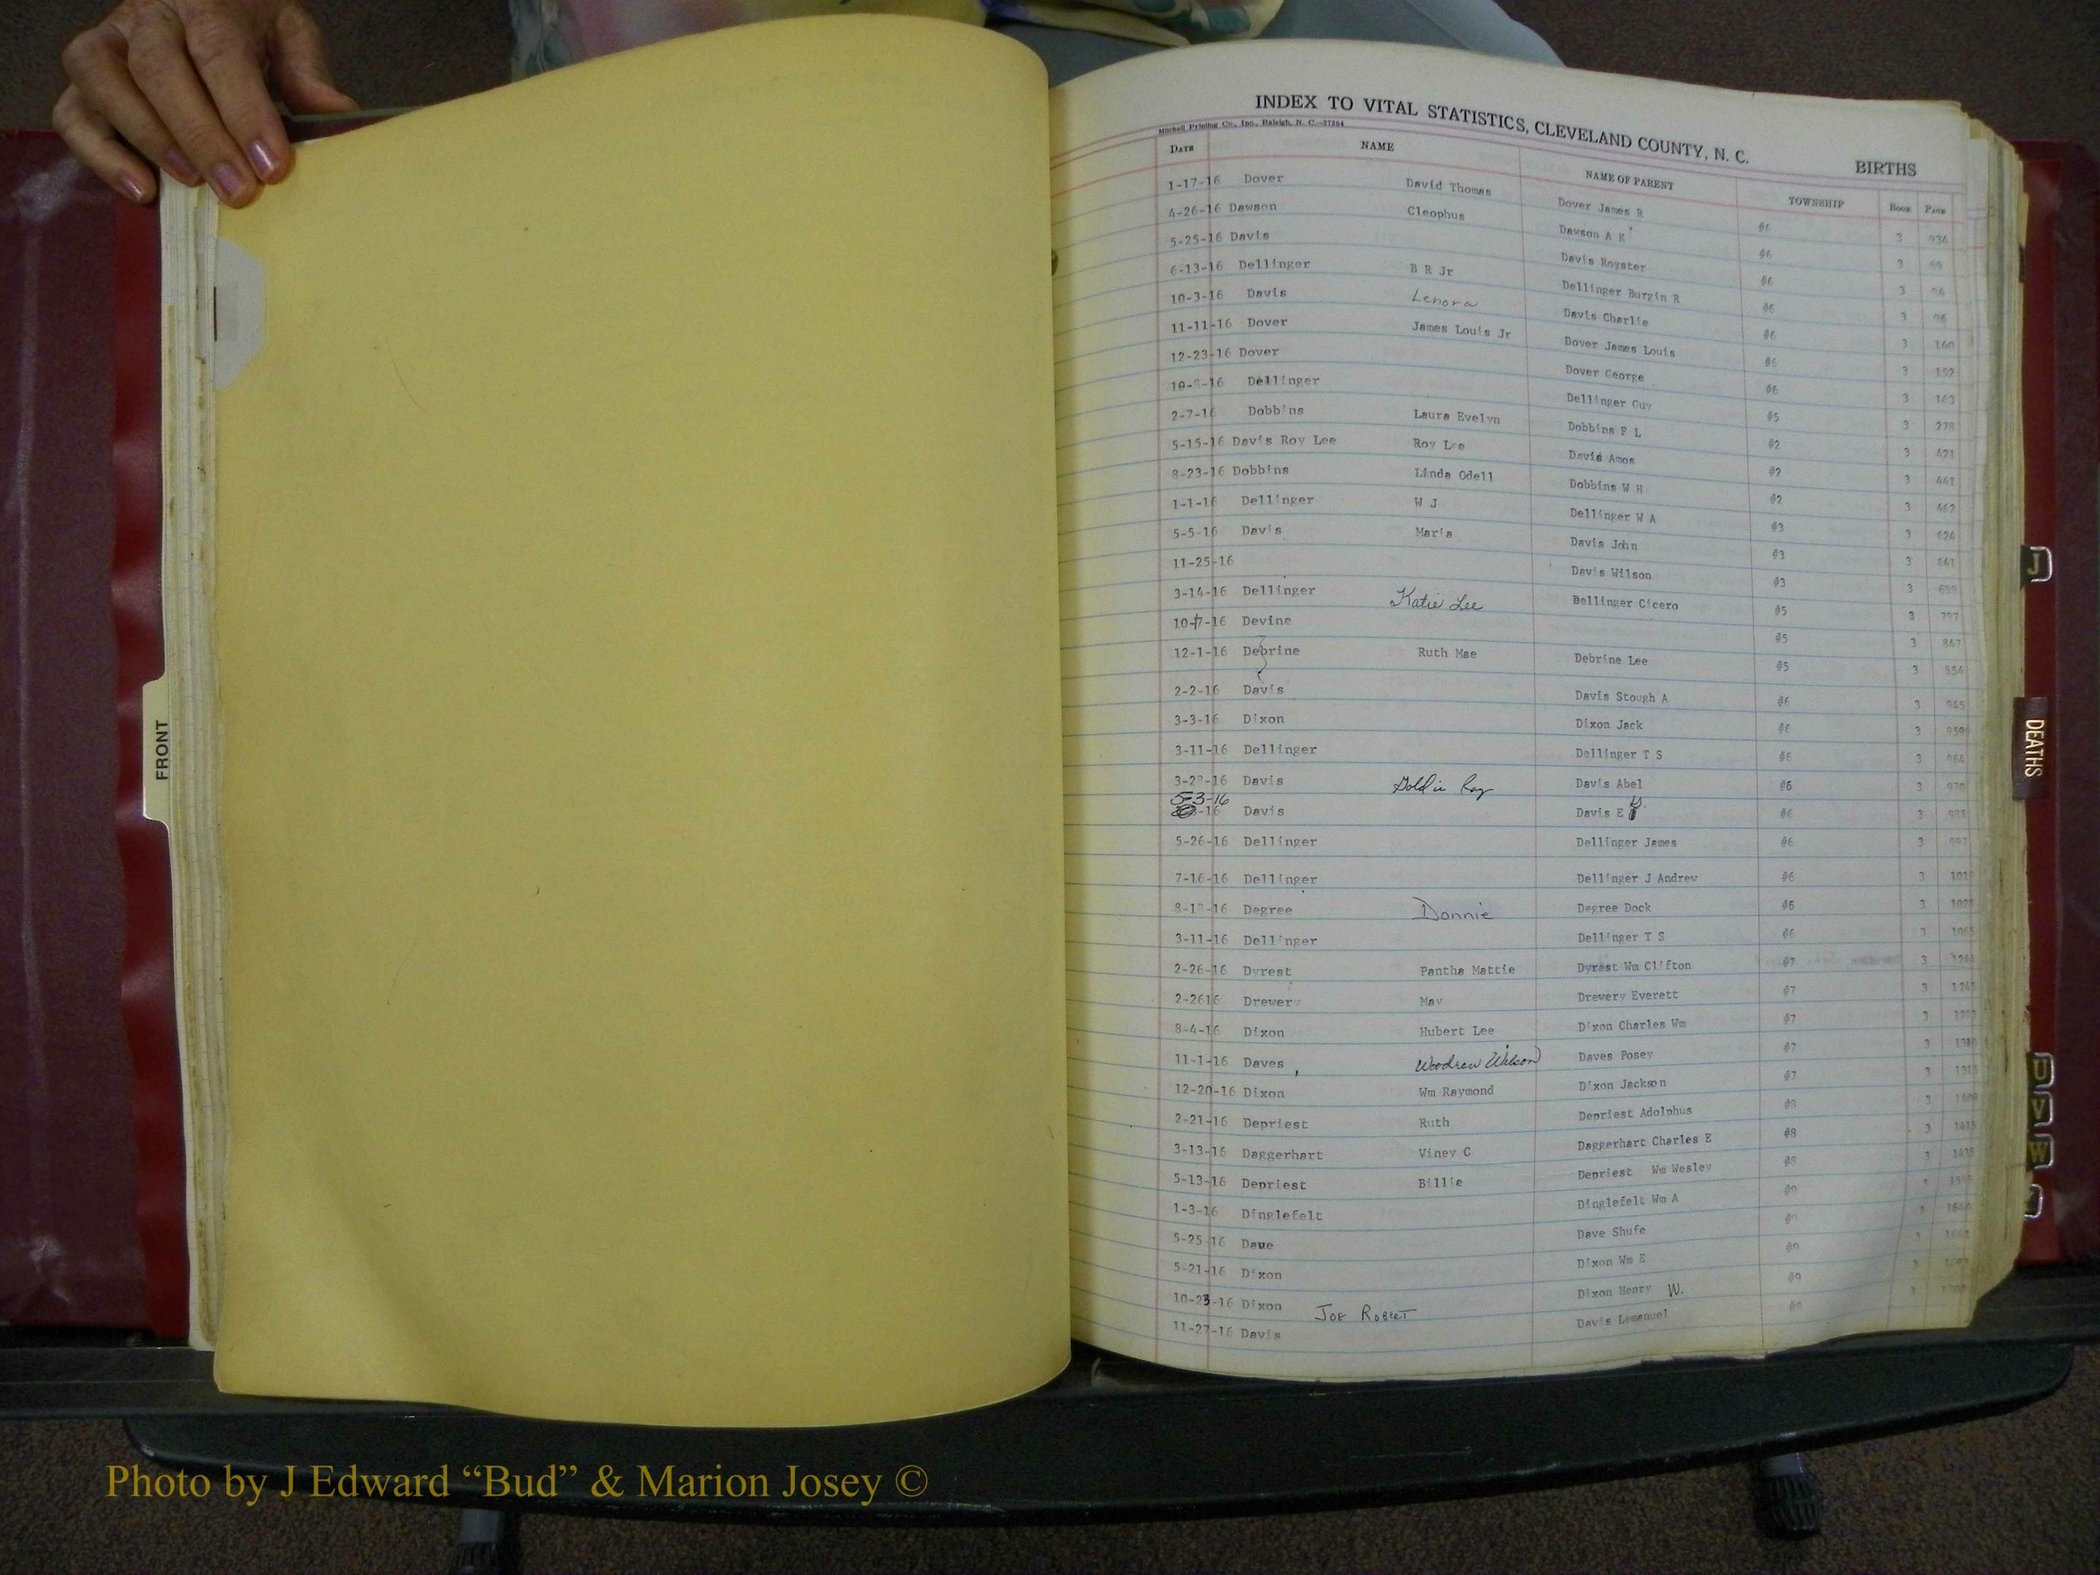 INDEX TO VITAL STATISTICS, CLEVELAND COUNTY, N. C. BIRTHS
Mitchell Printing Co., Inc., Raleigh, N. C.—37204
DATE NAME NAME OF PARENT TOWNSHIP BOOK PAGE
1-17-16 Dover David Thomas Dover James R #6 3 934
4-26-16 Dawson Cleophus Dawson A K #6 3
5-25-16 Davis Davis Royster #6 3
6-13-16 Dellinger B R Jr Dellinger Burgin R #6 3 96
10-3-16 Davis Lenora Davis Charlie #6 3 140
11-11-16 Dover James Louis Jr Dover James Louis #6 3 152
12-23-16 Dover Dover George #6 3 163
Dellinger Dellinger Guy #5 3 278
2-7-16 Dobbins Laura Evelyn Dobbins F L #2 3 421
5-15-16 Davis Roy Lee Roy Lee Davis Amos #2 3 441
8-23-16 Dobbins Linda Odell Dobbins W H #2 3 462
1-1-16 Dellinger W J Dellinger W A #3 3 624
5-5-16 Davis Maria Davis John #3 3 641
11-25-16 Davis Wilson #3 3
3-14-16 Dellinger Katie Lee Dellinger Cicero #5 3
10-17-16 Devine #5 3 847
12-1-16 Debrine Ruth Mae Debrine Lee #5 3 854
2-2-16 Davis Davis Stough A #6 3 945
3-3-16 Dixon Dixon Jack #6 3 959
3-11-16 Dellinger Dellinger T S #6 3 964
Davis Goldie Ray Davis Abel #6 3 970
5-3-16
Davis Davis E #6 3
5-26-16 Dellinger Dellinger James #6 3 997
7-16-16 Dellinger Dellinger J Andrew #6 3
Degree Donnie Degree Dock #6 3
3-11-16 Dellinger Dellinger T S #6 3
2-26-16 Dyrest Pantha Mattie Dyrest Wm Clifton #7 3
2-2616 Drewery May Drewery Everett #7 3
8-4-16 Dixon Hubert Lee Dixon Charles Wm #7 3
11-1-16 Daves Woodrow Wilson Daves Posey #7 3
12-20-16 Dixon Wm Raymond Dixon Jackson #7 3
2-21-16 Depriest Ruth Depriest Adolphus #8 3
3-13-16 Daggerhart Viney C Daggerhart Charles E #8 3
5-13-16 Depriest Billie Depriest Wm Wesley #8 3
1-3-16 Dinglefelt Dinglefelt Wm A #9
5-25-16 Dave Dave Shufe
5-21-16 Dixon Dixon Wm E #9
10-23-16 Dixon Joe Robert Dixon Henry W. #9
11-27-16 Davis Davis Lemanuel #9
FRONT
J
DEATHS
U
V
W
Photo by J Edward “Bud” & Marion Josey ©